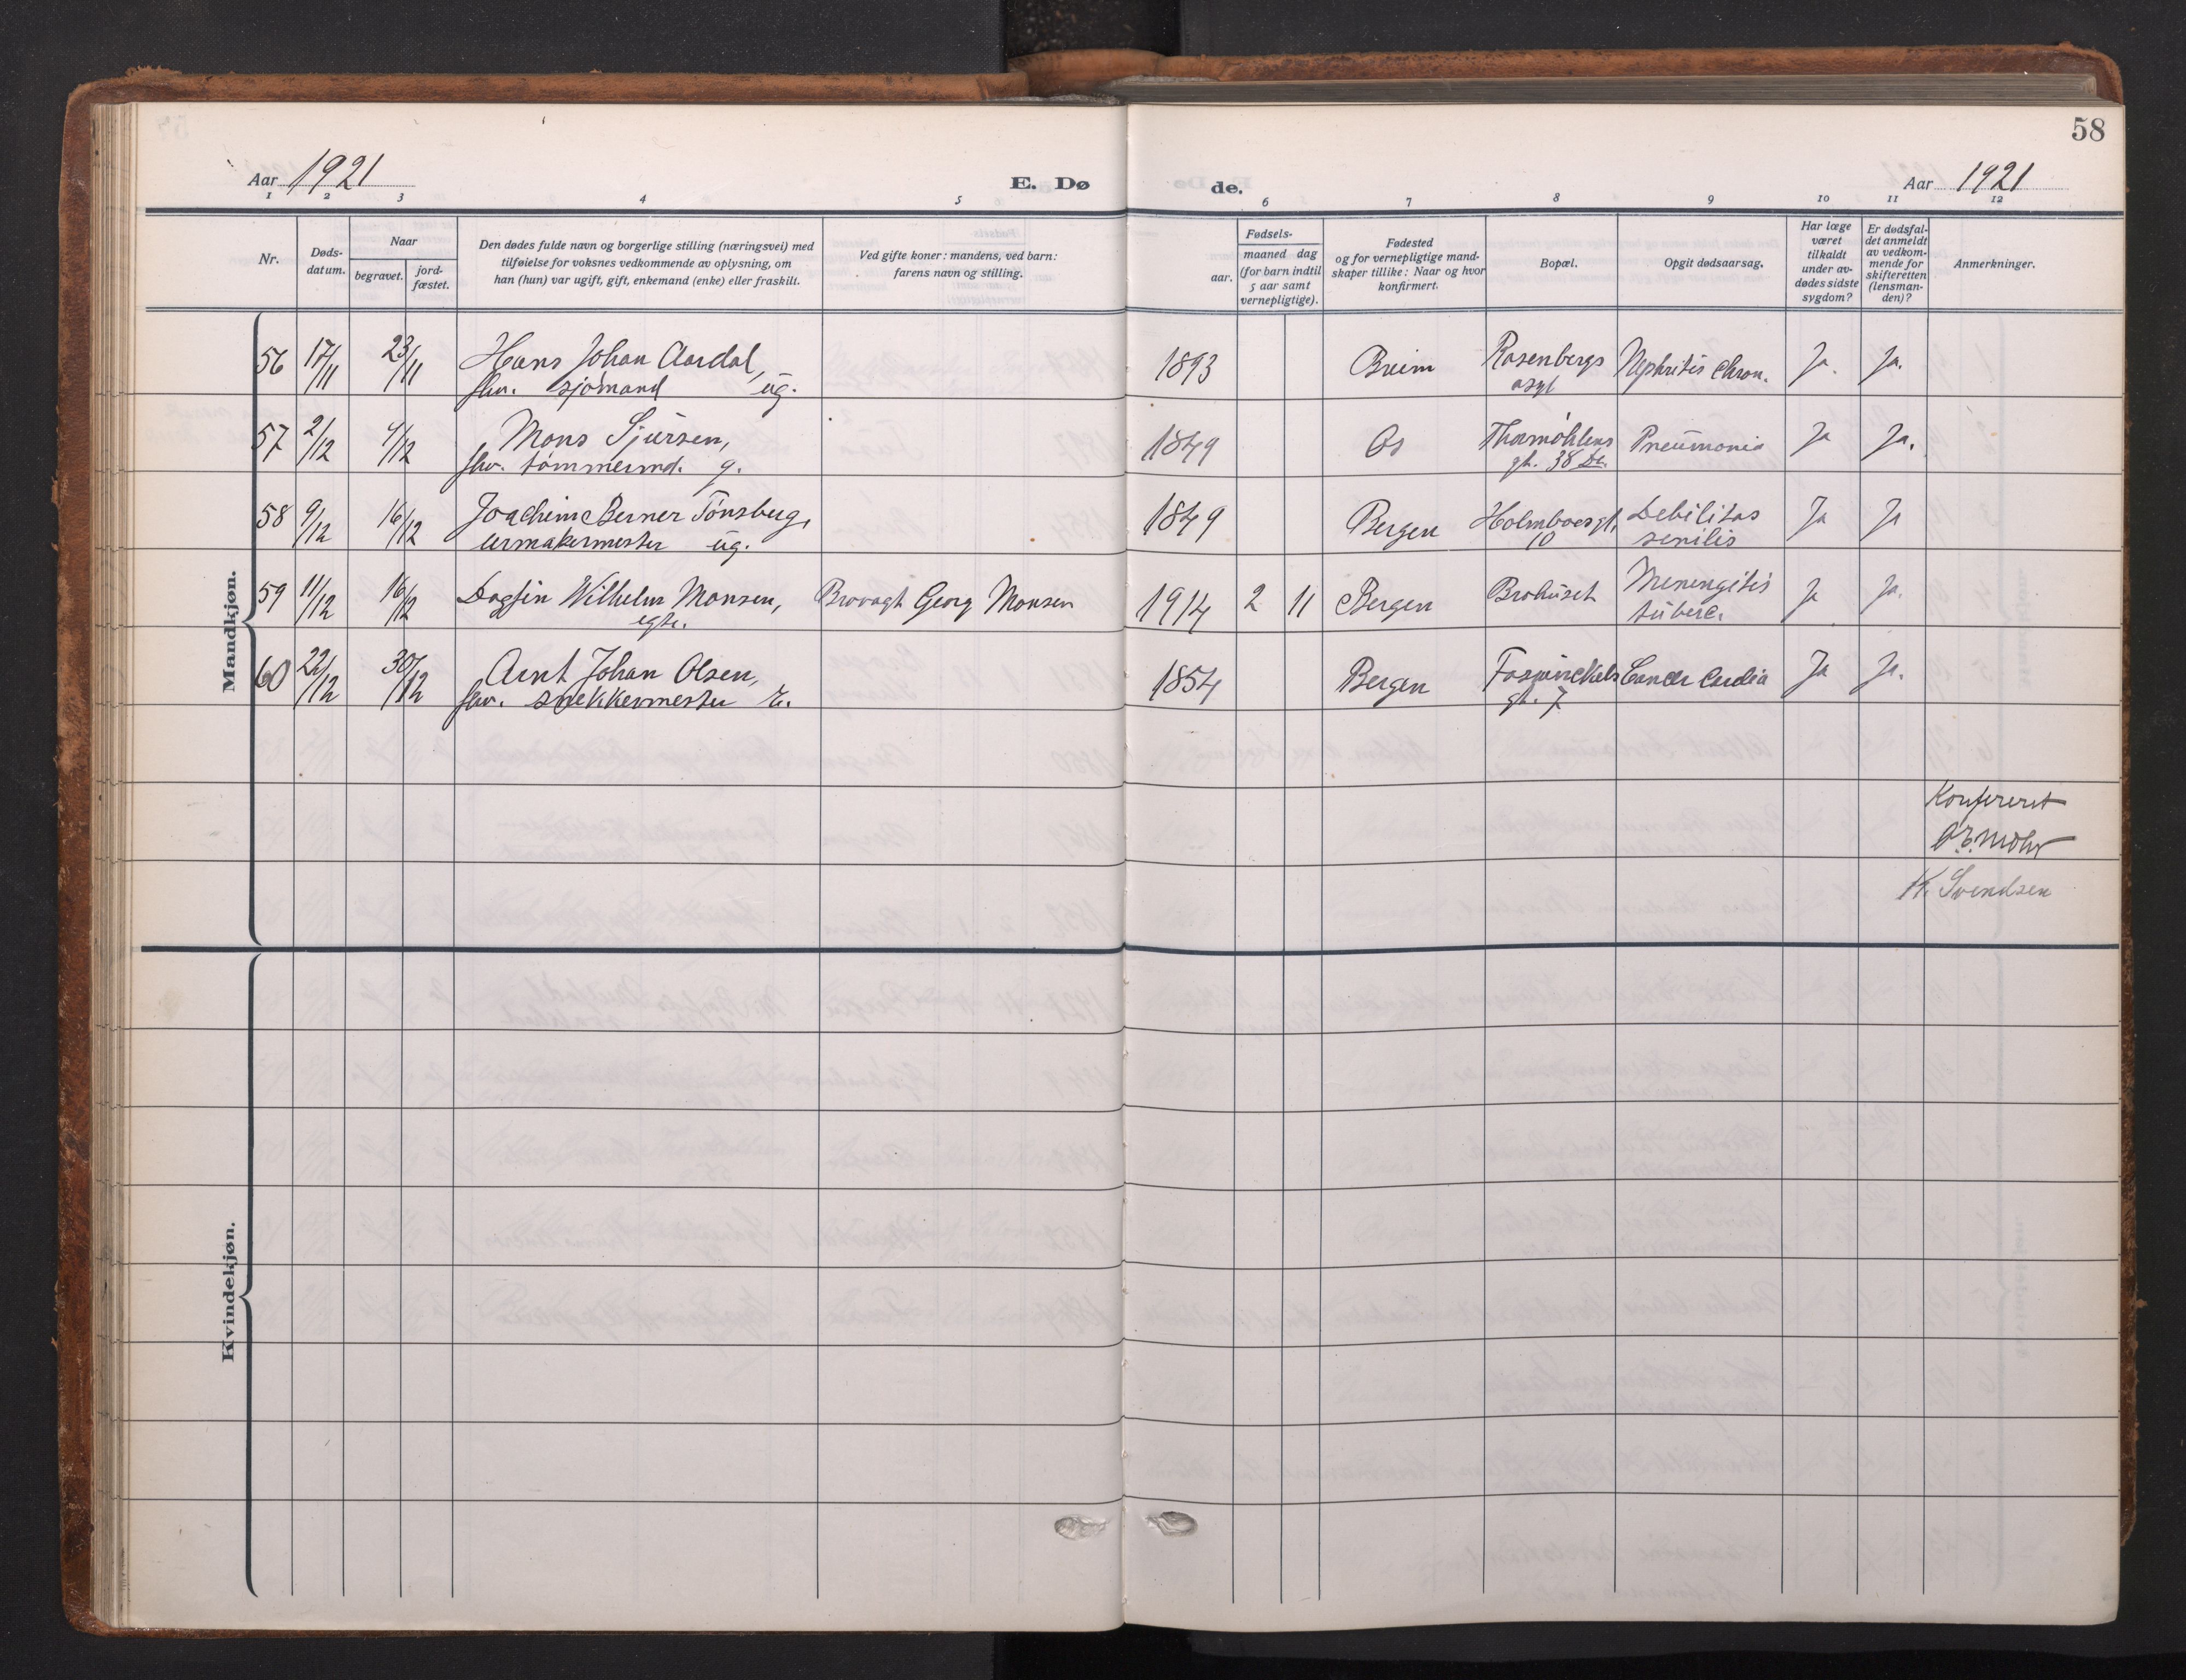 58
Aar 1921
E. Dø
de.
Aar 1921
1 2 3 4 5 6 7 8 9 10 11 12
Nr.
Døds-
datum.
Naar
begravet.
jord-
fæstet.
Den dødes fulde navn og borgerlige stilling (næringsvei) med
tilføielse for voksnes vedkommende av oplysning, om
han (hun) var ugift, gift, enkemand (enke) eller fraskilt.
Ved gifte koner: mandens, ved barn:
farens navn og stilling.
Fødsels-
aar.
maaned dag
(for barn indtil
5 aar samt
vernepligtige).
Fødested
og for vernepligtige mand-
skaper tillike: Naar og hvor
konfirmert.
Bopæl.
Opgit dødsaarsag.
Har læge
været
tilkaldt
under av-
dødes sidste
sygdom?
Er dødsfal-
det anmeldt
av vedkom-
mende for
skifteretten
(lensman-
den)?
Anmerkninger.
Mandkjøn.
56 17/11 23/11 Hans Johan Aardal, 1893 Breim Rosenbergs Nephritis Chron. Ja. Ja.
fhv. sjømand ug. asyl
57 2/12 7/12 Mons Sjursen, 1849 Os Thormøhlens Pneumonia Ja Ja.
fhv. tømmermd. g. gt. 38
58 9/12 16/12 Joachim Berner Tønsberg, 1849 Bergen Holmboesgt. Debilitas Ja Ja
urmakermester ug. 10 senilis
59 11/12 16/12 Dagfin Wilhelm Monsen, Brovagt Georg Monsen 1914 2 11 Bergen Brohuset Menengitis Ja Ja.
egte. tuberc.
60 22/12 30/12 Arnt Johan Olsen, 1854 Bergen Foswinckels Cancer Cardia Ja Ja.
fhv. snekkermester E. gt. 7
Konfereret
Mohr
K. Svendsen
Kvindekjøn.